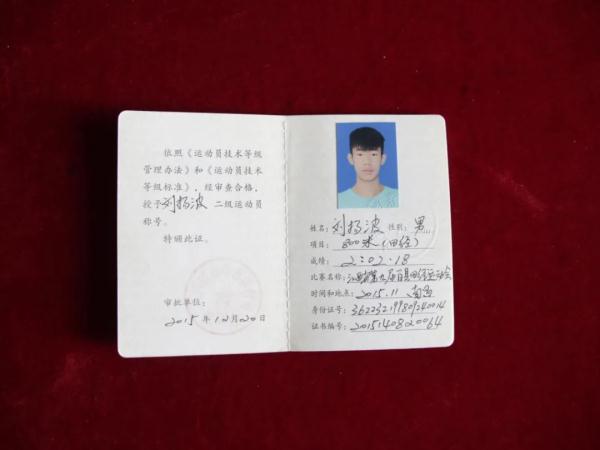 依照《运动员技术等级
管理办法》和《运动员技术
等级标准》，经审查合格，
授予刘扬波 二级运动员
称号。
特颁此证。
审批单位：
2015年12月20日
姓名：刘扬波 性别：男
项目：800米(田径)
成绩：2:02.18
比赛名称：江西省第九届百县田径运动会
时间和地点：2015.11 南昌
身份证号：362232199809240014
证书编号：2015140820064